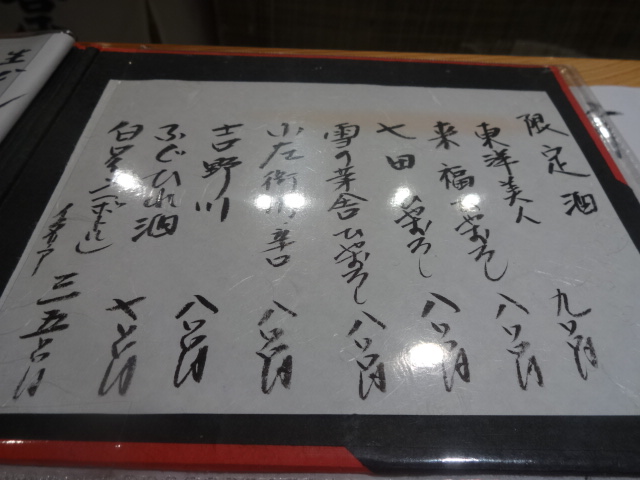 限定酒
東洋美人 九〇〇円
来福 ひやおろし 八〇〇円
七田 ひやおろし 八〇〇円
雪の茅舎 ひやおろし 八〇〇円
小左衛門 辛口 八〇〇円
吉野川 八〇〇円
ふぐひれ酒 八〇〇円
白星 七〇〇円
イタリア 三五〇〇円